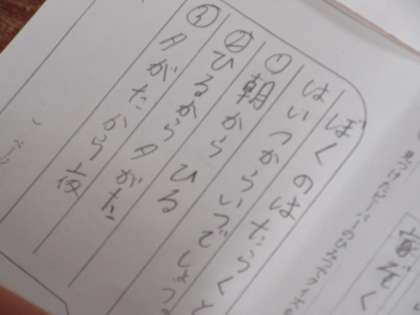 ぼくのはたらくと
はいつからいつでしょう
①朝から ひる
②ひるから 夕がた
③夕がたから 夜